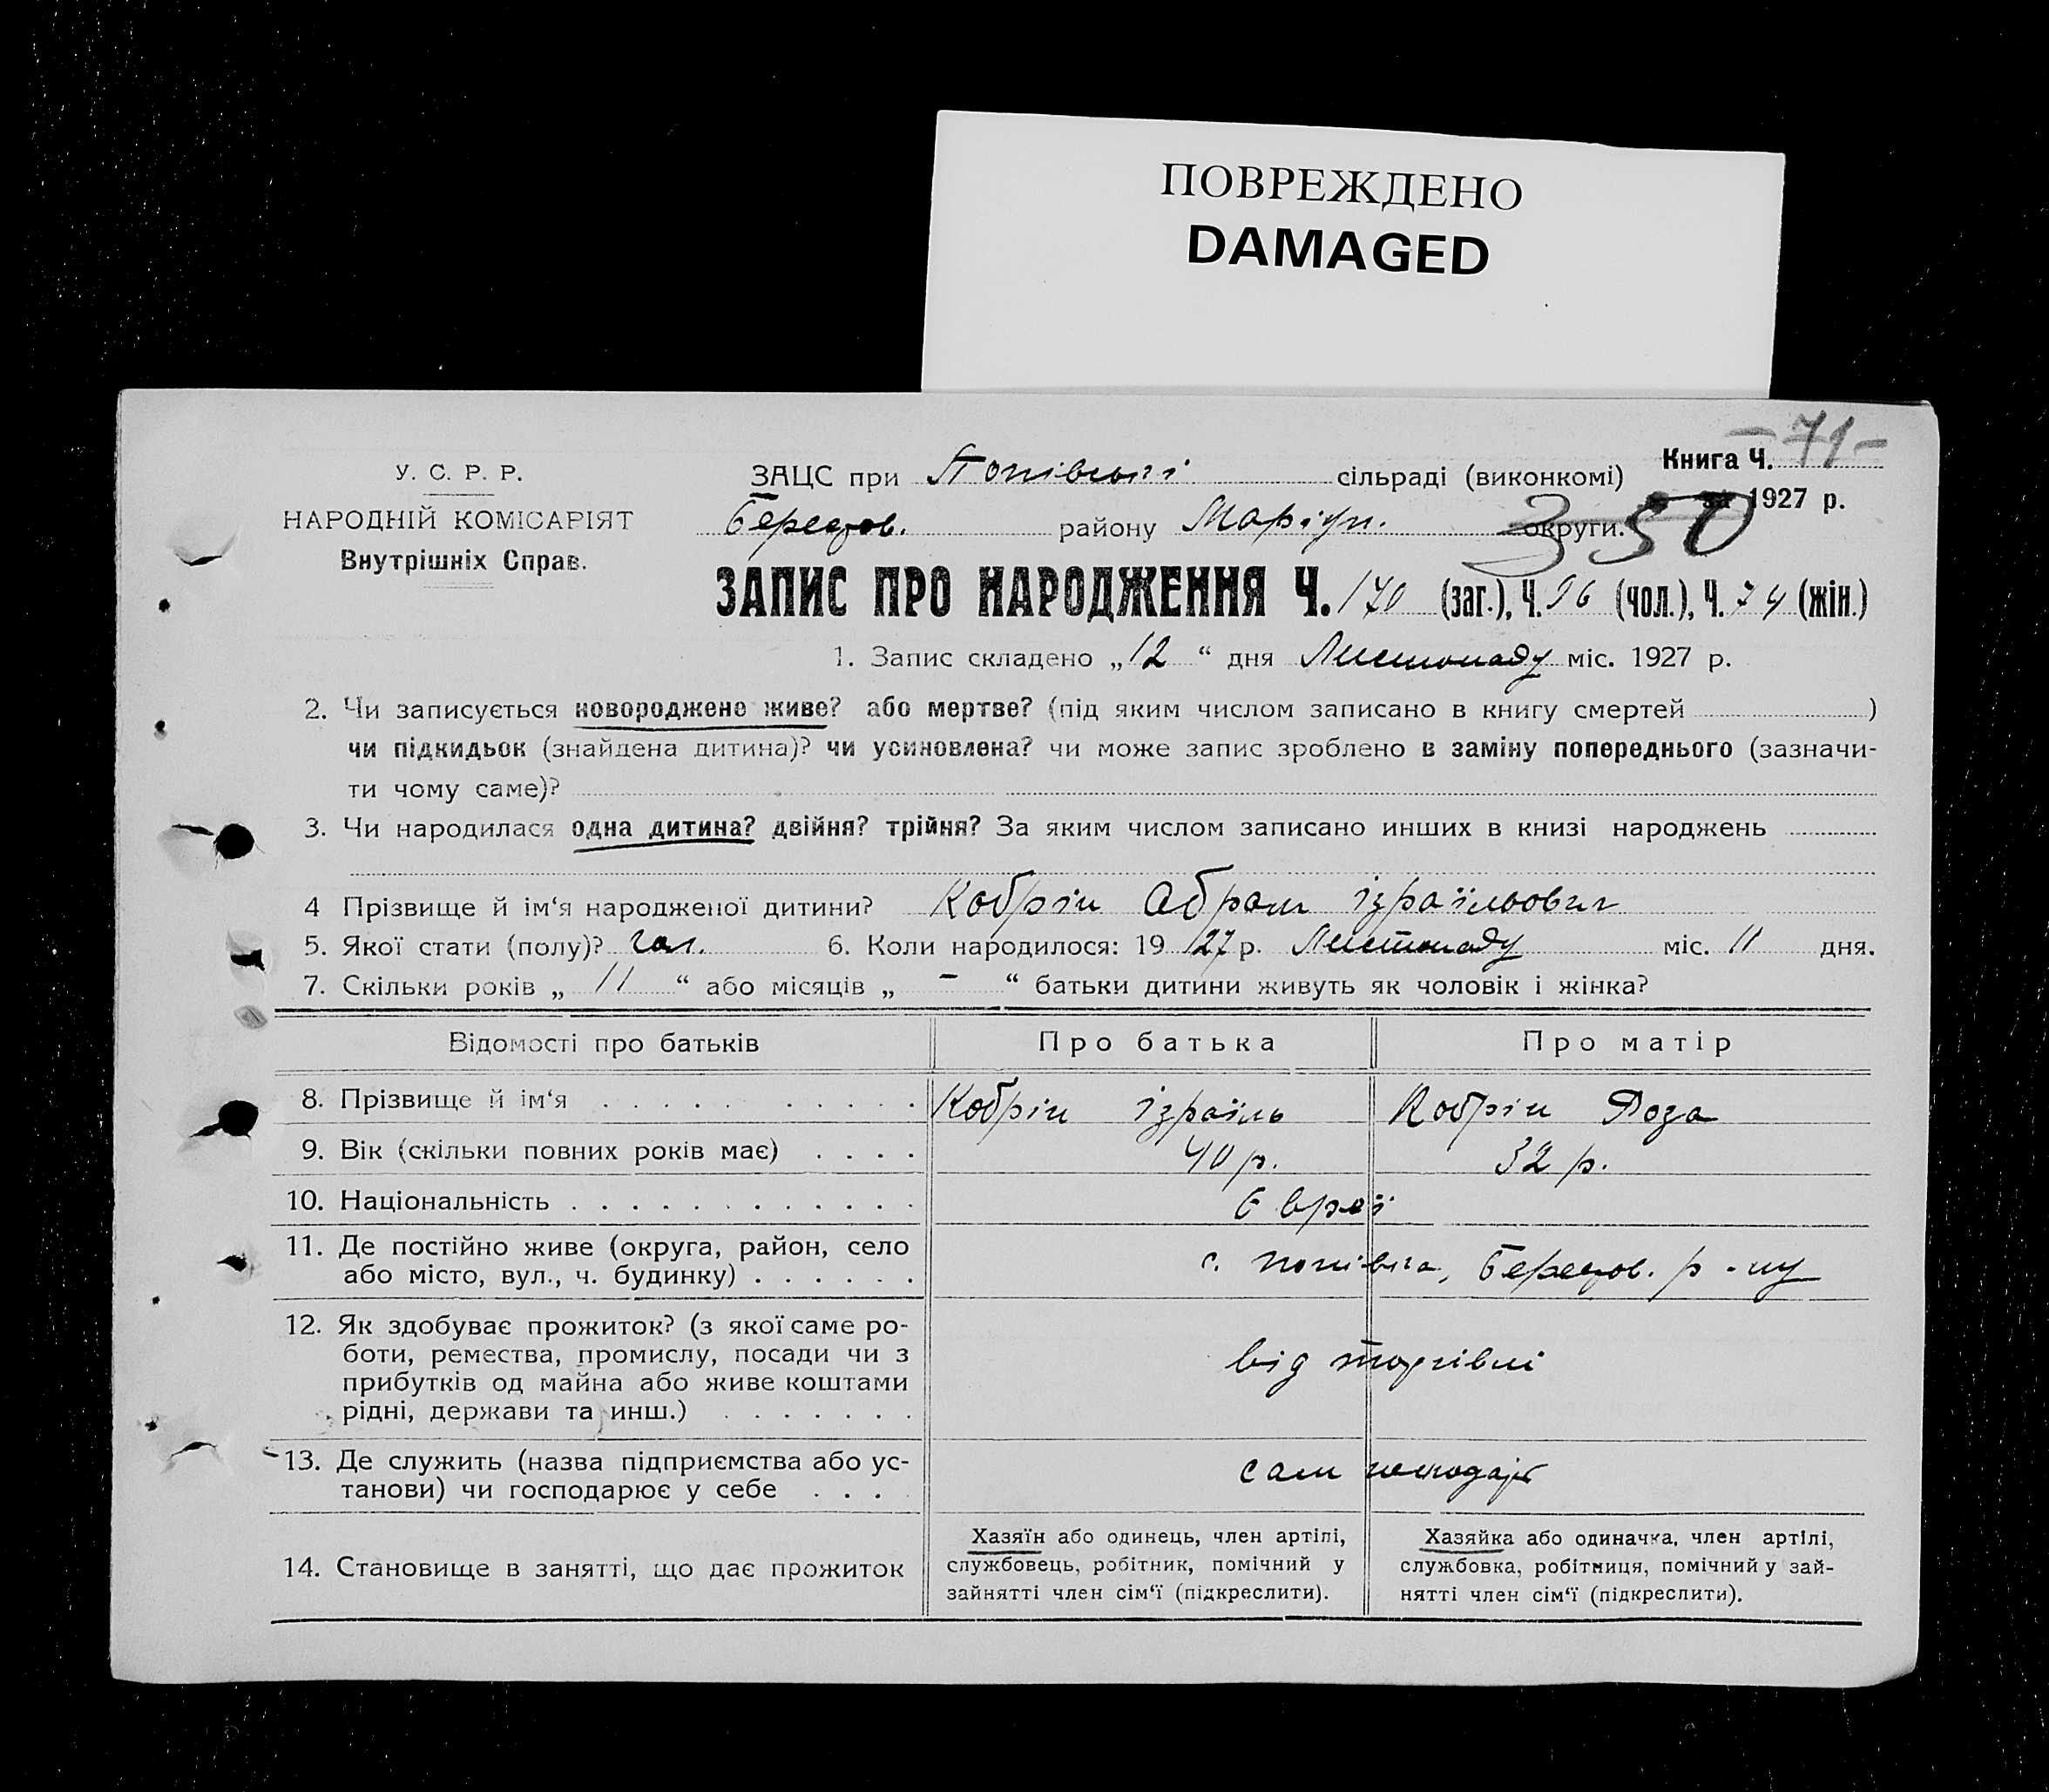 ПОВРЕЖДЕНО
DAMAGED
-71-
У. С. Р. Р.
НАРОДНІЙ КОМІСАРІЯТ
Внутрішніх Справ.
ЗАЦС при Попівській сільраді (виконкомі)
Книга Ч.
за 1927 р.
Берестов. району Маріуп. округи.
350
ЗАПИС ПРО НАРОДЖЕННЯ Ч. 170 (заг.), Ч. 96 (чол.), Ч. 74 (жін.)
1. Запис складено „12“ дня Листопаду міс. 1927 р.
2. Чи записується новороджене живе? або мертве? (під яким числом записано в книгу смертей )
чи підкидьок (знайдена дитина)? чи усиновлена? чи може запис зроблено в заміну попереднього (зазначи-
ти чому саме)?
3. Чи народилася одна дитина? двійня? трійня? За яким числом записано инших в книзі народжень
4 Прізвище й ім‘я народженої дитини? Кобрін Абрам Ізраїльович
5. Якої стати (полу)? чол. 6. Коли народилося: 1927 р. Листопаду міс. 11 дня.
7. Скільки років „ 11 “ або місяців „ – “ батьки дитини живуть як чоловік і жінка?
Відомості про батьків Про батька Про матір
8. Прізвище й ім‘я Кобрін Ізраїль Кобрін Роза
9. Вік (скільки повних років має) 40 р. 32 р.
10. Національність Євреї
11. Де постійно живе (округа, район, село
або місто, вул., ч. будинку) с. Попівка, Берестов. р-ну
12. Як здобуває прожиток? (з якої саме ро-
боти, ремества, промислу, посади чи з
прибутків од майна або живе коштами
рідні, держави та инш.) від торгівлі
13. Де служить (назва підприємства або ус-
танови) чи господарює у себе сам господар
14. Становище в занятті, що дає прожиток
Хазяїн або одинець, член артілі,
службовець, робітник, помічний у
зайнятті член сім‘ї (підкреслити).
Хазяйка або одиначка, член артілі,
службовка, робітниця, помічний у зай-
нятті член сім‘ї (підкреслити).